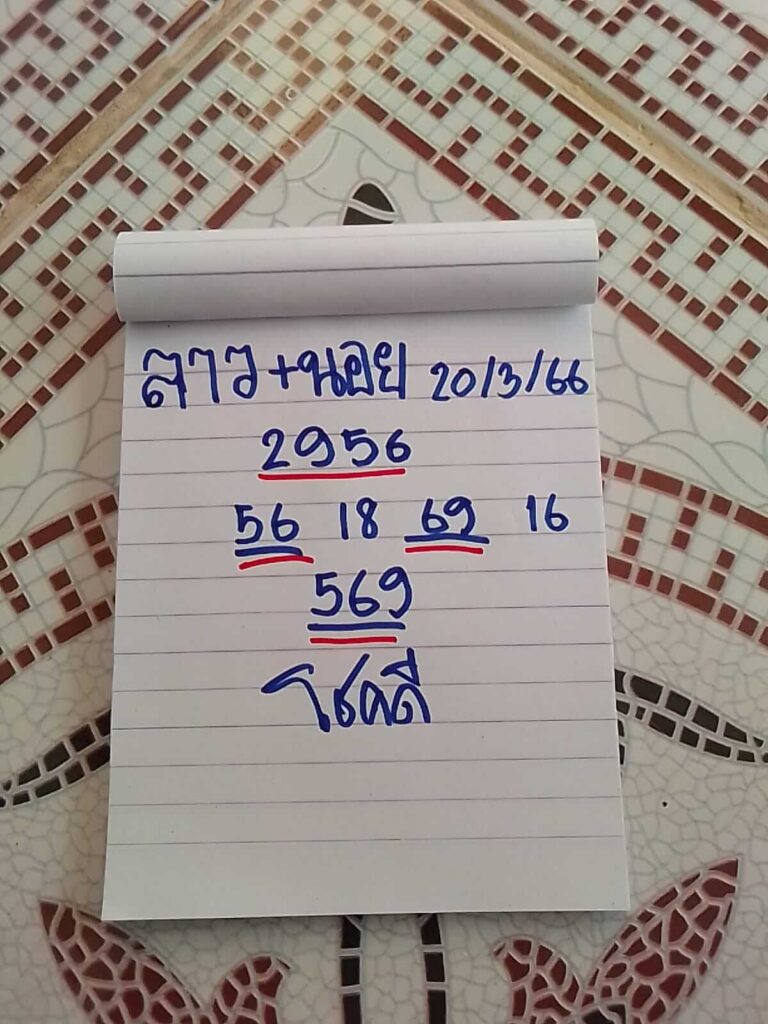 ลาว+นอย 20/3/66
2956
56 18 69 16
569
โชคดี